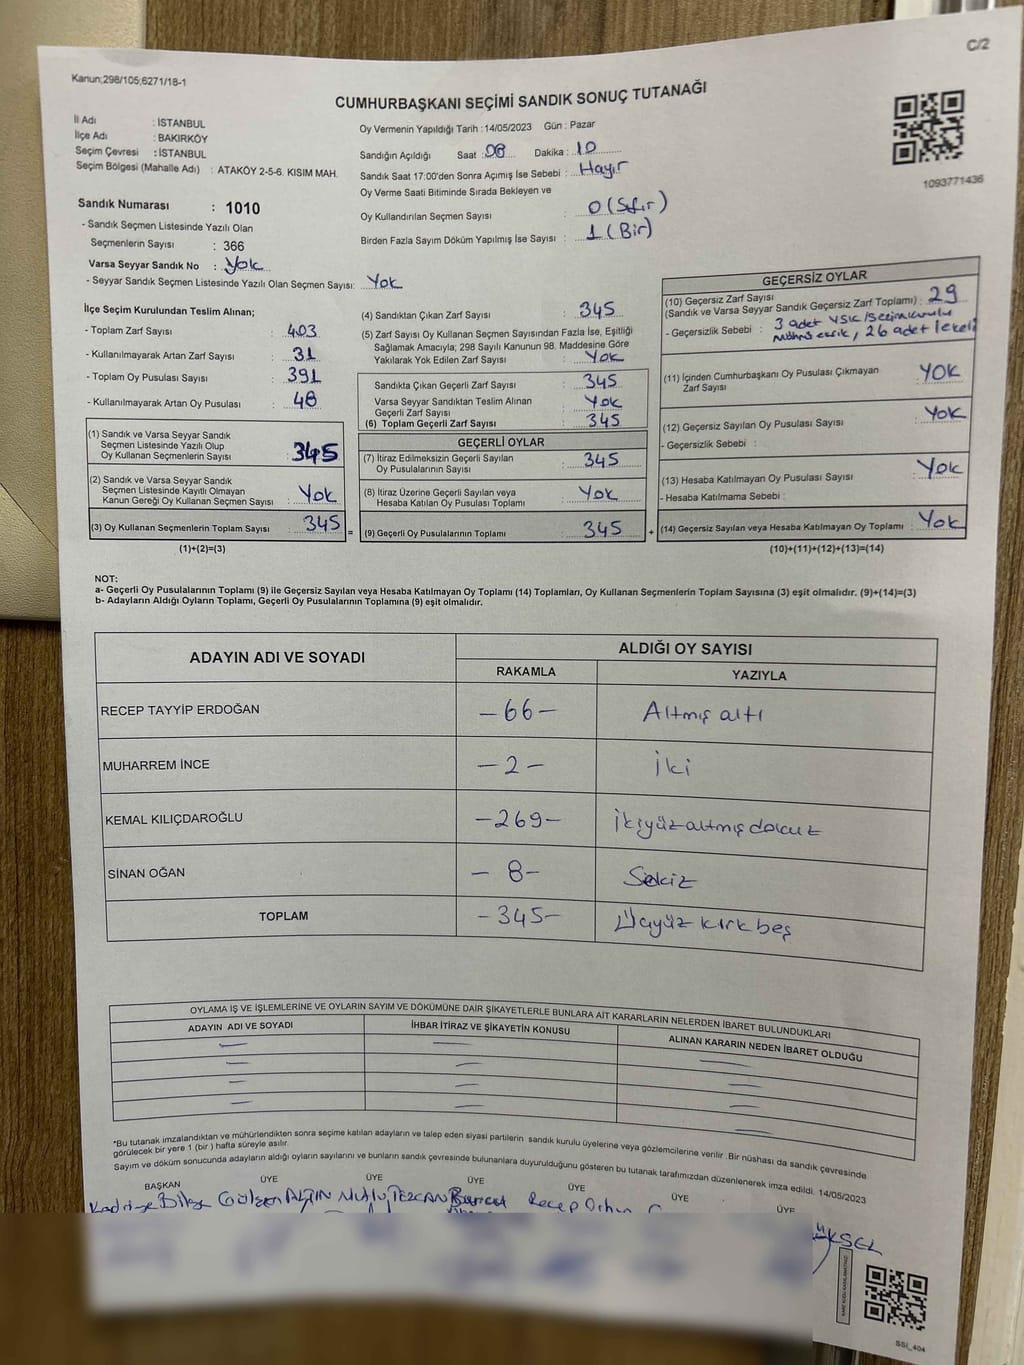 C/2
Kanun;298/105;6271/18-1
CUMHURBAŞKANI SEÇİMİ SANDIK SONUÇ TUTANAĞI
1093771436
İl Adı : İSTANBUL
İlçe Adı : BAKIRKÖY
Seçim Çevresi : İSTANBUL
Seçim Bölgesi (Mahalle Adı) : ATAKÖY 2-5-6. KISIM MAH.
Oy Vermenin Yapıldığı Tarih : 14/05/2023 Gün : Pazar
Sandığın Açıldığı Saat : 08 Dakika : 10
Sandık Saat 17:00'den Sonra Açımış İse Sebebi : Hayır
Oy Verme Saati Bitiminde Sırada Bekleyen ve
Oy Kullandırılan Seçmen Sayısı : 0 (Sıfır)
Birden Fazla Sayım Döküm Yapılmış İse Sayısı : 1 (Bir)
Sandık Numarası : 1010
- Sandık Seçmen Listesinde Yazılı Olan
Seçmenlerin Sayısı : 366
Varsa Seyyar Sandık No : Yok
- Seyyar Sandık Seçmen Listesinde Yazılı Olan Seçmen Sayısı: Yok
İlçe Seçim Kurulundan Teslim Alınan;
- Toplam Zarf Sayısı : 403
- Kullanılmayarak Artan Zarf Sayısı : 31
- Toplam Oy Pusulası Sayısı : 391
- Kullanılmayarak Artan Oy Pusulası : 48
(1) Sandık ve Varsa Seyyar Sandık
Seçmen Listesinde Yazılı Olup
Oy Kullanan Seçmenlerin Sayısı : 345
(2) Sandık ve Varsa Seyyar Sandık
Seçmen Listesinde Kayıtlı Olmayan
Kanun Gereği Oy Kullanan Seçmen Sayısı : Yok
(3) Oy Kullanan Seçmenlerin Toplam Sayısı : 345 =
(1)+(2)=(3)
(4) Sandıktan Çıkan Zarf Sayısı : 345
(5) Zarf Sayısı Oy Kullanan Seçmen Sayısından Fazla İse, Eşitliği
Sağlamak Amacıyla; 298 Sayılı Kanunun 98. Maddesine Göre
Yakılarak Yok Edilen Zarf Sayısı : Yok
Sandıkta Çıkan Geçerli Zarf Sayısı : 345
Varsa Seyyar Sandıktan Teslim Alınan
Geçerli Zarf Sayısı : Yok
(6) Toplam Geçerli Zarf Sayısı : 345
GEÇERLİ OYLAR
(7) İtiraz Edilmeksizin Geçerli Sayılan
Oy Pusulalarının Sayısı : 345
(8) İtiraz Üzerine Geçerli Sayılan veya
Hesaba Katılan Oy Pusulası Toplamı : Yok
(9) Geçerli Oy Pusulalarının Toplamı : 345 +
GEÇERSİZ OYLAR
(10) Geçersiz Zarf Sayısı
(Sandık ve Varsa Seyyar Sandık Geçersiz Zarf Toplamı) : 29
- Geçersizlik Sebebi : 3 adet YSK/seçim kurulu
mührü eksik, 26 adet lekeli
(11) İçinden Cumhurbaşkanı Oy Pusulası Çıkmayan
Zarf Sayısı : YOK
(12) Geçersiz Sayılan Oy Pusulası Sayısı : Yok
- Geçersizlik Sebebi :
(13) Hesaba Katılmayan Oy Pusulası Sayısı : Yok
- Hesaba Katılmama Sebebi :
(14) Geçersiz Sayılan veya Hesaba Katılmayan Oy Toplamı : Yok
(10)+(11)+(12)+(13)=(14)
NOT:
a- Geçerli Oy Pusulalarının Toplamı (9) ile Geçersiz Sayılan veya Hesaba Katılmayan Oy Toplamı (14) Toplamları, Oy Kullanan Seçmenlerin Toplam Sayısına (3) eşit olmalıdır. (9)+(14)=(3)
b- Adayların Aldığı Oyların Toplamı, Geçerli Oy Pusulalarının Toplamına (9) eşit olmalıdır.
ADAYIN ADI VE SOYADI
ALDIĞI OY SAYISI
RAKAMLA YAZIYLA
RECEP TAYYİP ERDOĞAN -66- Altmış altı
MUHARREM İNCE -2- İki
KEMAL KILIÇDAROĞLU -269- İkiyüzaltmış dokuz
SİNAN OĞAN -8- Sekiz
TOPLAM -345- Üçyüz kırk beş
OYLAMA İŞ VE İŞLEMLERİNE VE OYLARIN SAYIM VE DÖKÜMÜNE DAİR ŞİKAYETLERLE BUNLARA AİT KARARLARIN NELERDEN İBARET BULUNDUKLARI
ADAYIN ADI VE SOYADI İHBAR İTİRAZ VE ŞİKAYETİN KONUSU ALINAN KARARIN NEDEN İBARET OLDUĞU
*Bu tutanak imzalandıktan ve mühürlendikten sonra seçime katılan adayların ve talep eden siyasi partilerin sandık kurulu üyelerine veya gözlemcilerine verilir. Bir nüshası da sandık çevresinde
görülecek bir yere 1 (bir ) hafta süreyle asılır.
Sayım ve döküm sonucunda adayların aldığı oyların sayılarını ve bunların sandık çevresinde bulunanlara duyurulduğunu gösteren bu tutanak tarafımızdan düzenlenerek imza edildi. 14/05/2023
BAŞKAN ÜYE ÜYE ÜYE ÜYE ÜYE ÜYE
Kadriye Bilge Gülşen ALTIN Nutlu TEZCAN Burcu Recep Orhun
SSİ_404